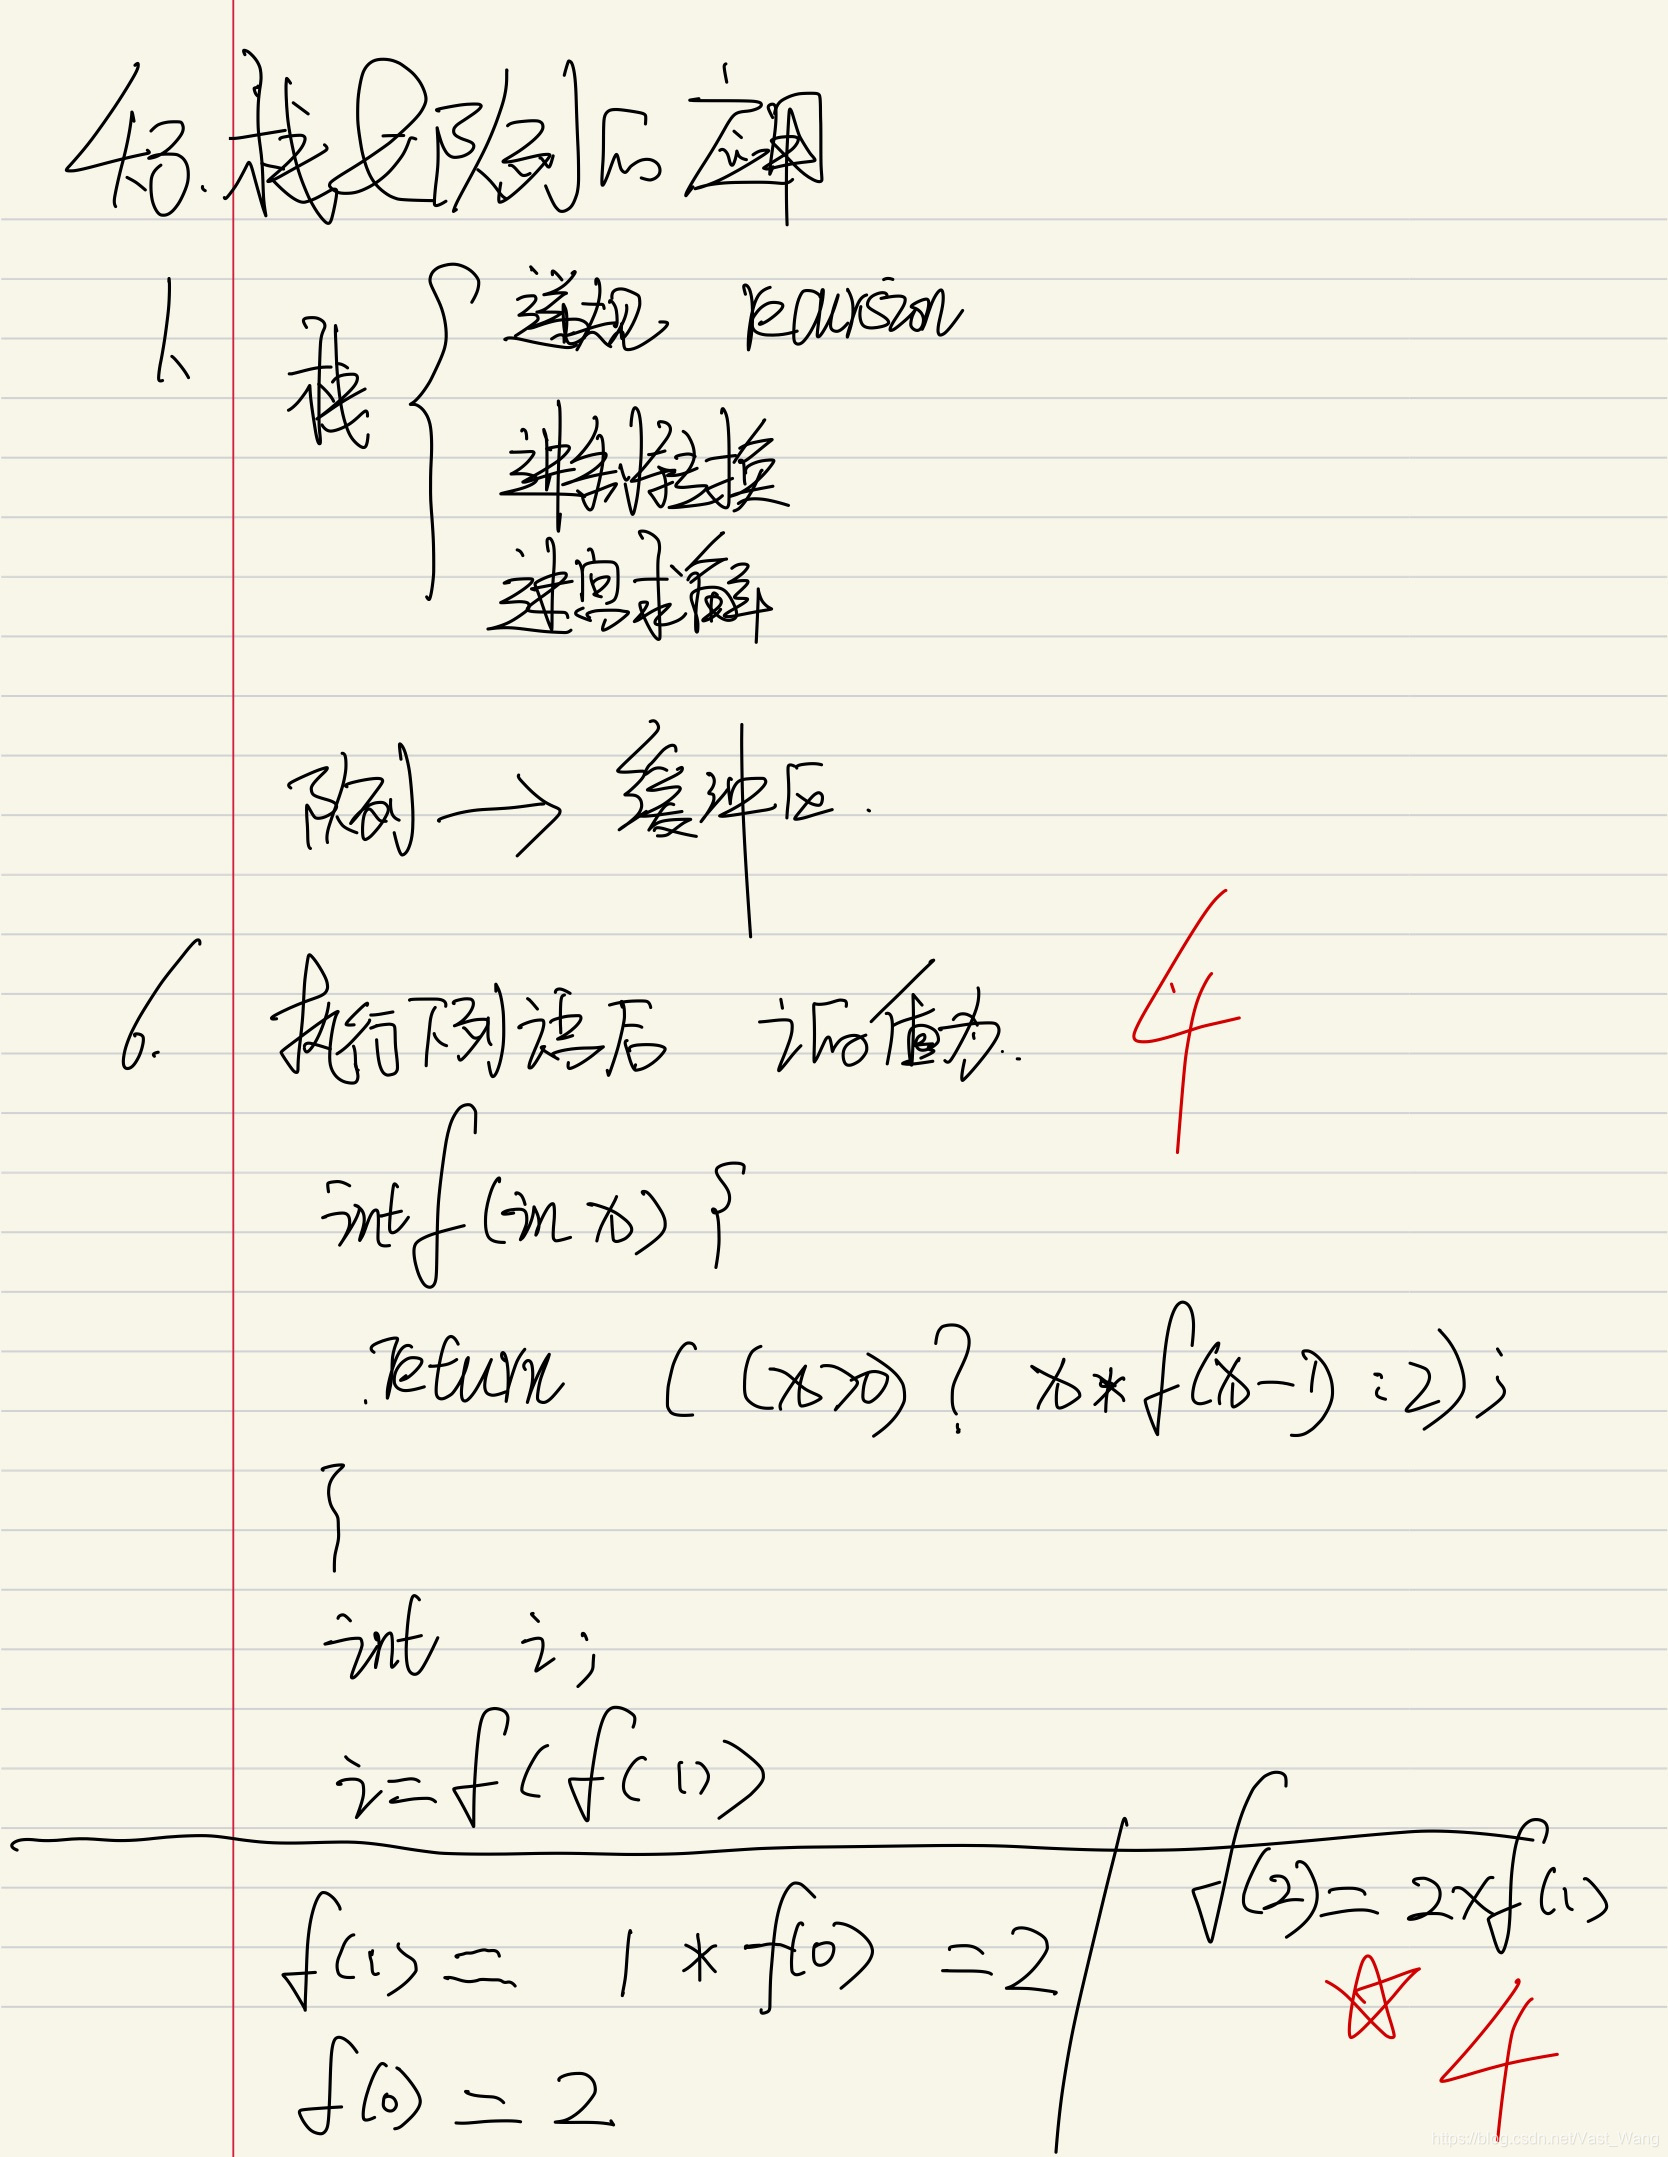 4.3. 栈和队列的应用
1、
栈 { 递规 recursion
进制转换
迷宫求解
队列 → 缓冲区.
6. 执行下列语后 i的值为.. 4
int f(in x) {
return ( (x>0) ? x * f(x-1) : 2) ;
}
int i ;
i = f( f(1)
f(1) = 1 * f(0) = 2
f(0) = 2
f(2) = 2×f(1)
☆ 4
https://blog.csdn.net/Vast_Wang